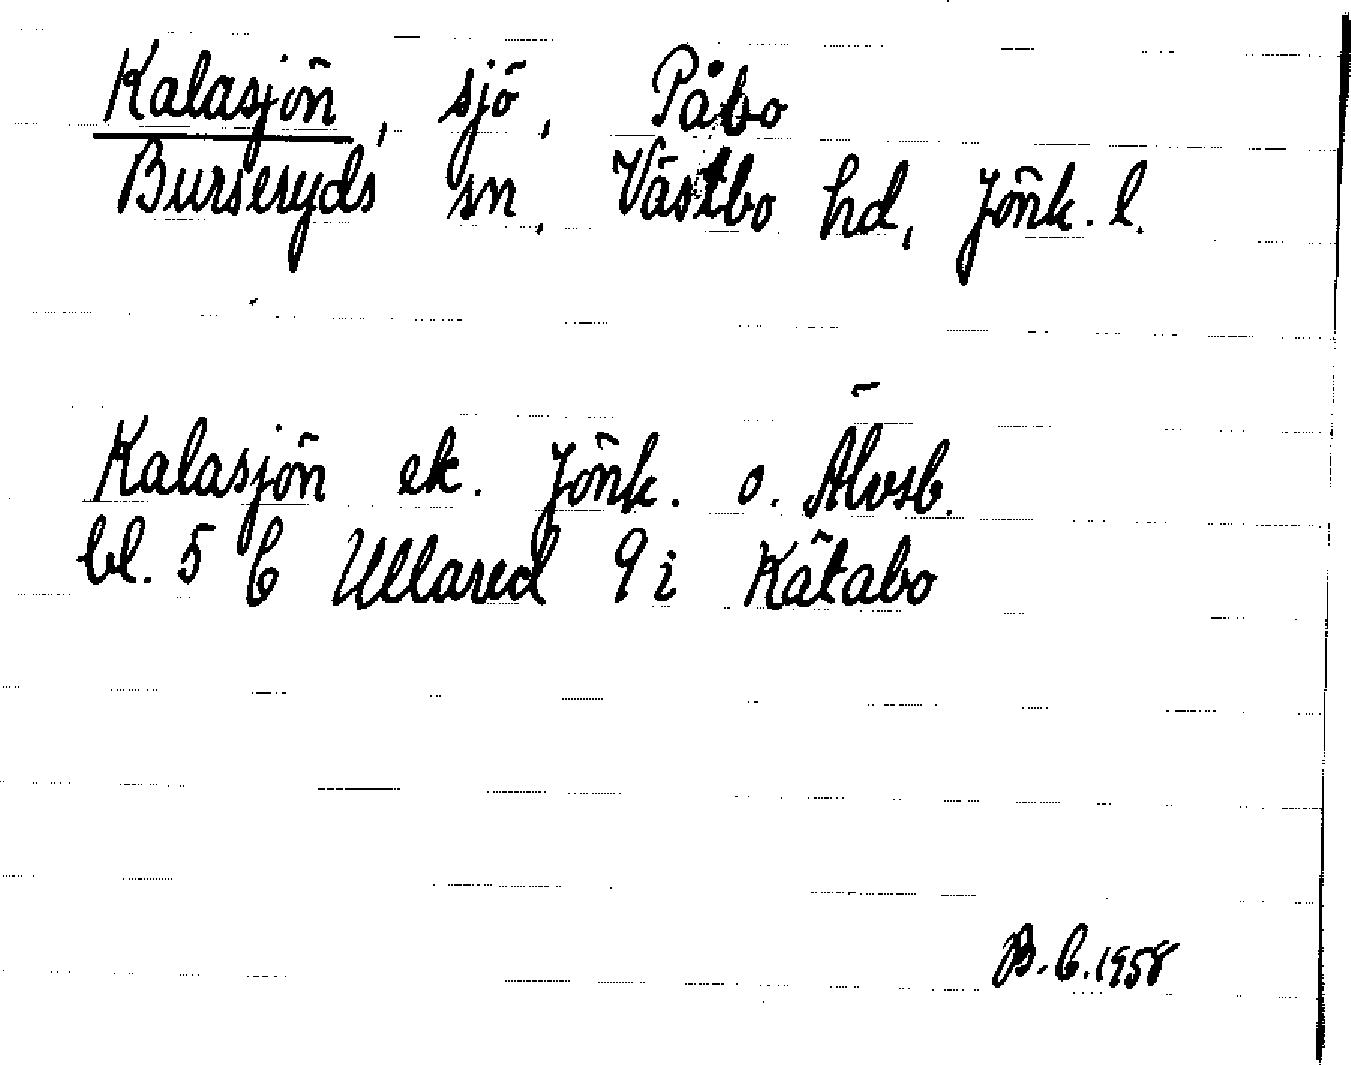 Kalasjön, sjö, Påbo
Burseryds sn, Västbo hd, Jönk. l.
Kalasjön ek. Jönk. o. Älvsb.
bl. 5 C Ullared 9 i Kåtabo
B. C. 1958